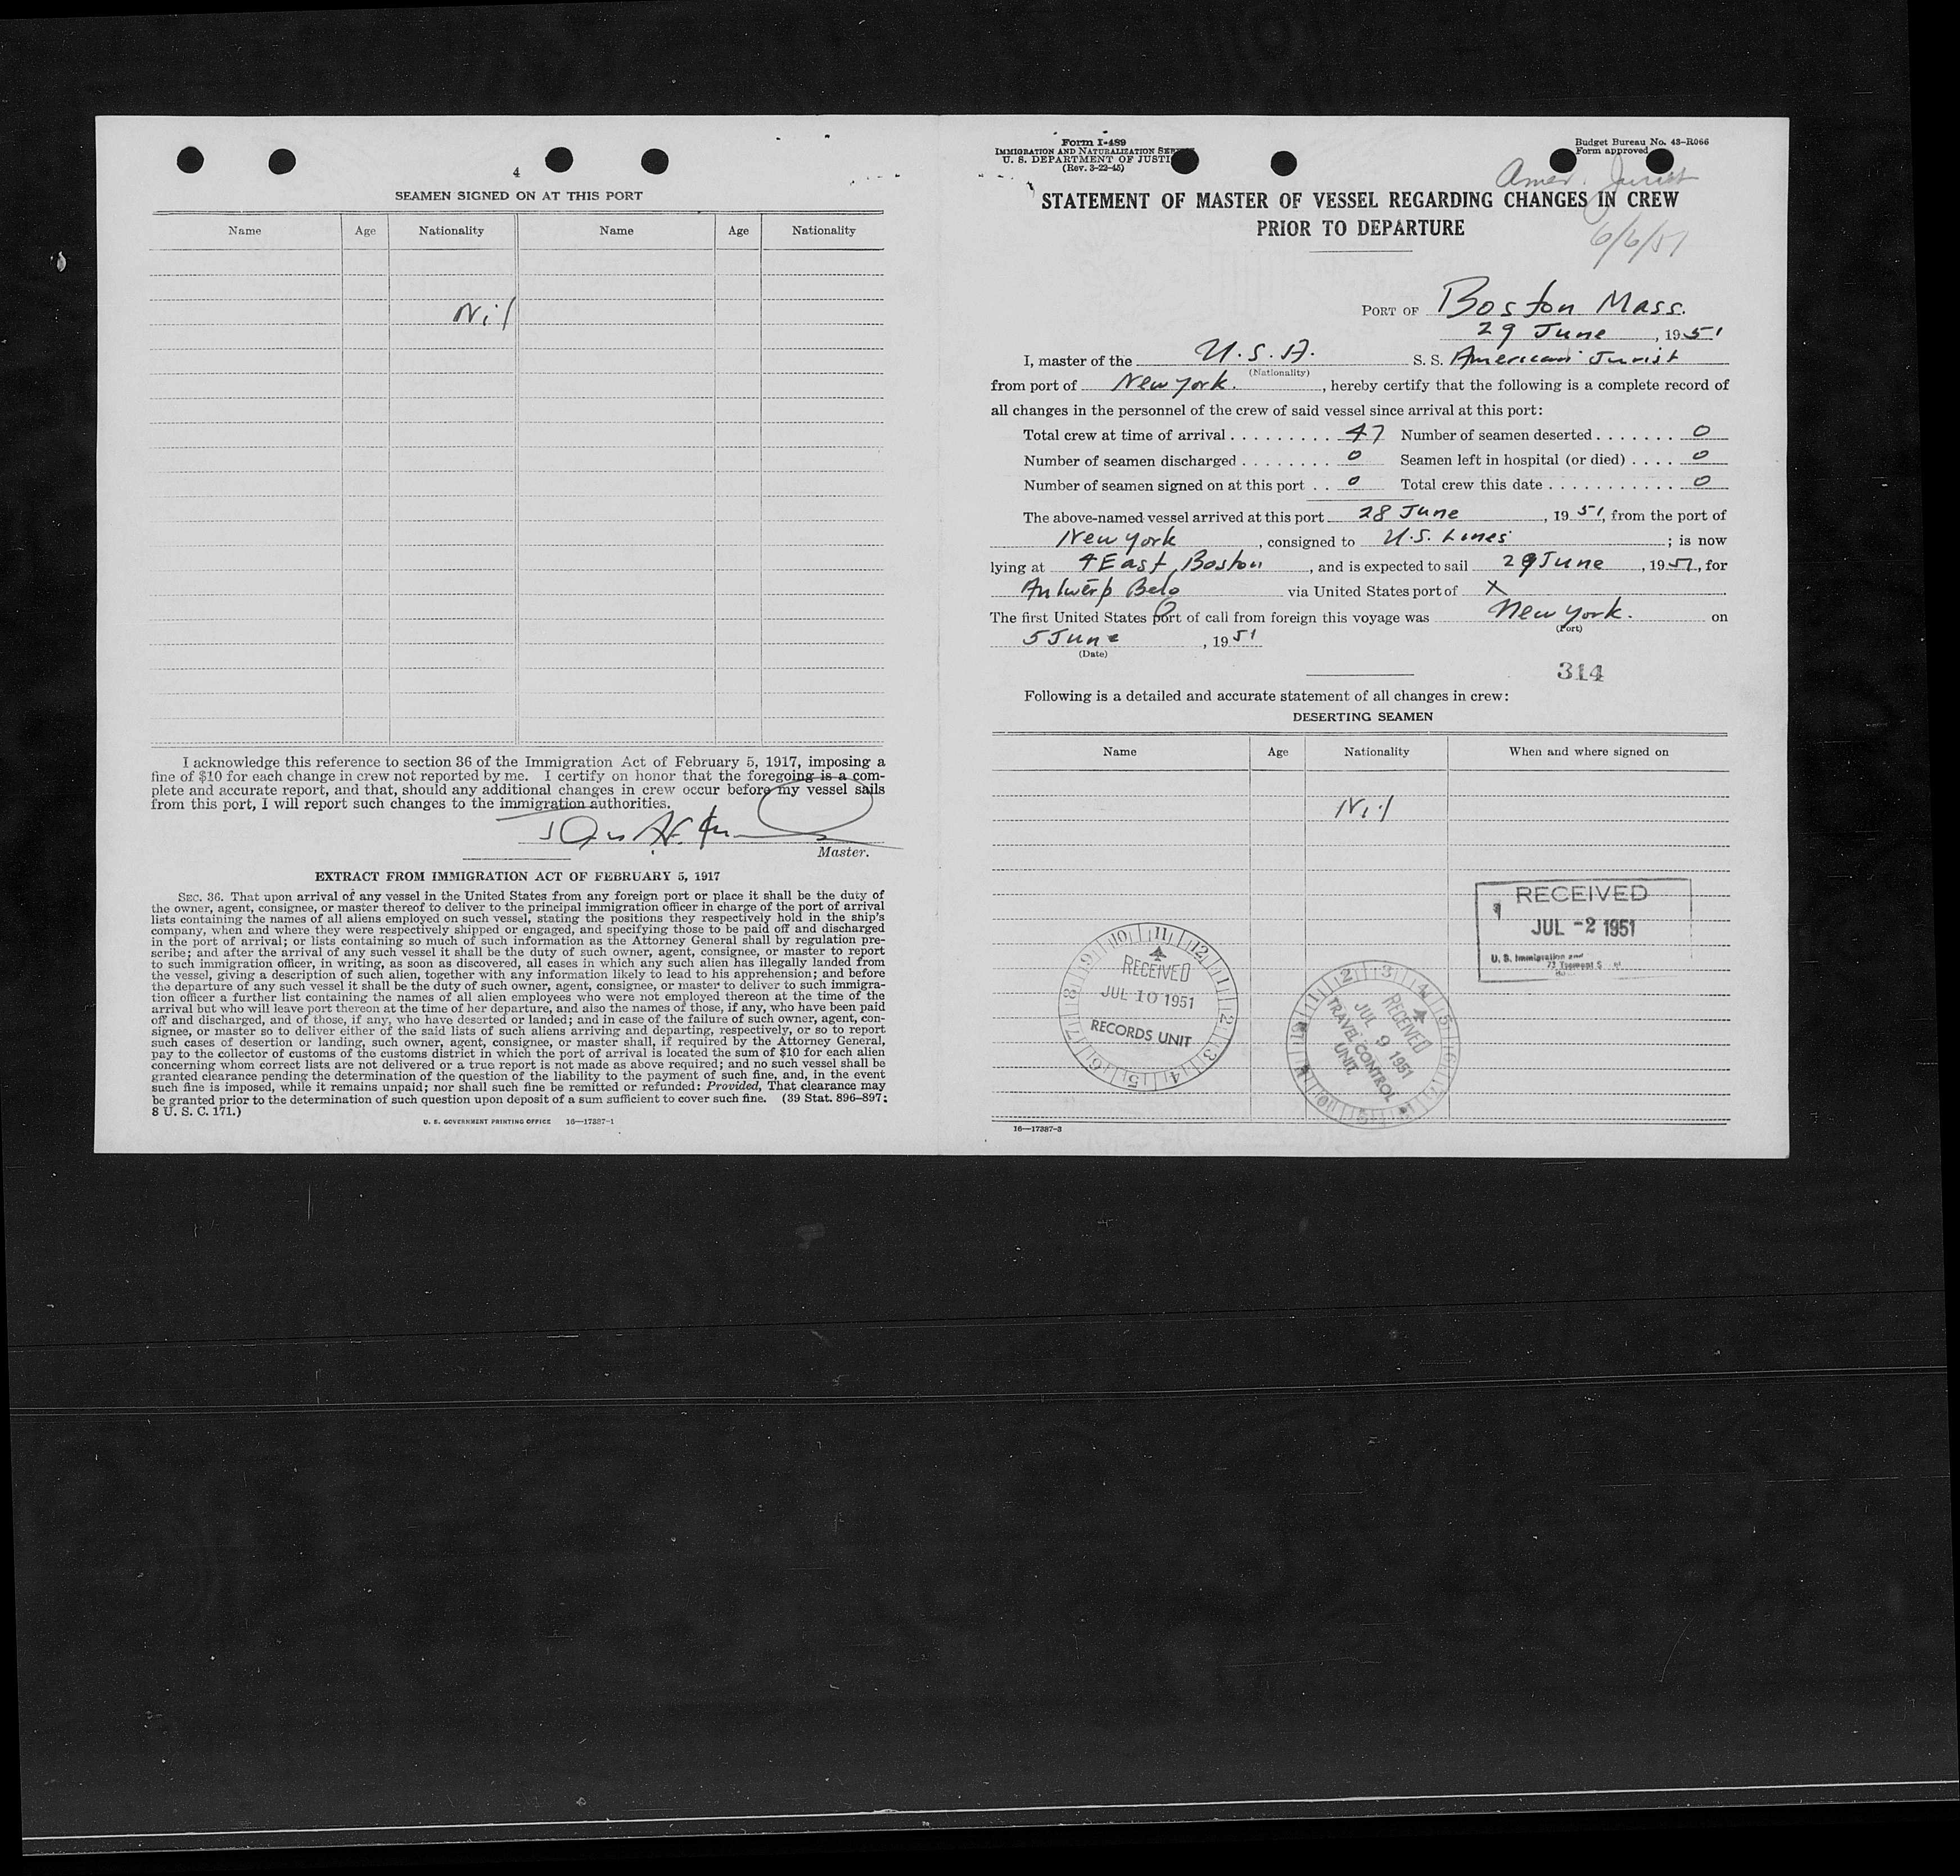 4
SEAMEN SIGNED ON AT THIS PORT
Name Age Nationality Name Age Nationality
Nil
I acknowledge this reference to section 36 of the Immigration Act of February 5, 1917, imposing a
fine of $10 for each change in crew not reported by me. I certify on honor that the foregoing is a com-
plete and accurate report, and that, should any additional changes in crew occur before my vessel sails
from this port, I will report such changes to the immigration authorities.
Master.
EXTRACT FROM IMMIGRATION ACT OF FEBRUARY 5, 1917
SEC. 36. That upon arrival of any vessel in the United States from any foreign port or place it shall be the duty of
the owner, agent, consignee, or master thereof to deliver to the principal immigration officer in charge of the port of arrival
lists containing the names of all aliens employed on such vessel, stating the positions they respectively hold in the ship's
company, when and where they were respectively shipped or engaged, and specifying those to be paid off and discharged
in the port of arrival; or lists containing so much of such information as the Attorney General shall by regulation pre-
scribe; and after the arrival of any such vessel it shall be the duty of such owner, agent, consignee, or master to report
to such immigration officer, in writing, as soon as discovered, all cases in which any such alien has illegally landed from
the vessel, giving a description of such alien, together with any information likely to lead to his apprehension; and before
the departure of any such vessel it shall be the duty of such owner, agent, consignee, or master to deliver to such immigra-
tion officer a further list containing the names of all alien employees who were not employed thereon at the time of the
arrival but who will leave port thereon at the time of her departure, and also the names of those, if any, who have been paid
off and discharged, and of those, if any, who have deserted or landed; and in case of the failure of such owner, agent, con-
signee, or master so to deliver either of the said lists of such aliens arriving and departing, respectively, or so to report
such cases of desertion or landing, such owner, agent, consignee, or master shall, if required by the Attorney General,
pay to the collector of customs of the customs district in which the port of arrival is located the sum of $10 for each alien
concerning whom correct lists are not delivered or a true report is not made as above required; and no such vessel shall be
granted clearance pending the determination of the question of the liability to the payment of such fine, and, in the event
such fine is imposed, while it remains unpaid; nor shall such fine be remitted or refunded: Provided, That clearance may
be granted prior to the determination of such question upon deposit of a sum sufficient to cover such fine. (39 Stat. 896-897;
8 U. S. C. 171.)
U. S. GOVERNMENT PRINTING OFFICE 16—17387-1
Form I-489
IMMIGRATION AND NATURALIZATION SER
U. S. DEPARTMENT OF JUSTI
(Rev. 3-22-45)
Budget Bureau No. 43-R066
Form approved
Amer. Jurist
6/6/51
STATEMENT OF MASTER OF VESSEL REGARDING CHANGES IN CREW
PRIOR TO DEPARTURE
PORT OF Boston Mass.
29 June, 1951
I, master of the U.S.A. S. S. American Jurist
(Nationality)
from port of New York., hereby certify that the following is a complete record of
all changes in the personnel of the crew of said vessel since arrival at this port:
Total crew at time of arrival . . . . . . . . . 47 Number of seamen deserted . . . . . . . 0
Number of seamen discharged . . . . . . . . 0 Seamen left in hospital (or died) . . . . 0
Number of seamen signed on at this port . . 0 Total crew this date . . . . . . . . . . . . 0
The above-named vessel arrived at this port 28 June, 1951, from the port of
New York, consigned to U.S. Lines; is now
lying at 4 East, Boston, and is expected to sail 29 June, 1951, for
Antwerp Belg via United States port of X
The first United States port of call from foreign this voyage was New York. on
(Port)
5 June, 1951
(Date)
314
Following is a detailed and accurate statement of all changes in crew:
DESERTING SEAMEN
Name Age Nationality When and where signed on
Nil
RECEIVED
JUL -2 1951
U. S. Immigration and
RECEIVED
JUL 10 1951
RECORDS UNIT
RECEIVED
JUL 9 1951
TRAVEL CONTROL
UNIT
16—17387-3